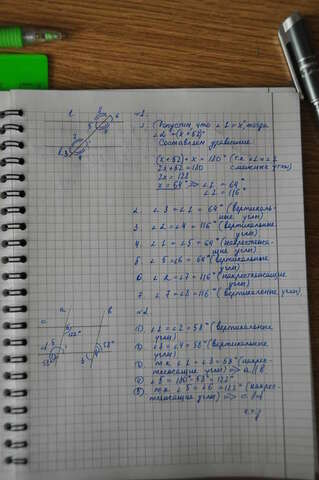 №1.
1. Допустим, что ∠1 = x, тогда
∠2 = (x+52)°
Составляем уравнение
(x+52)+x = 180° (т.к. ∠1 и ∠2
2x+52 = 180 смежные углы)
2x = 128
x = 64° => ∠1 = 64°
∠2 = 116°
2. ∠3 = ∠1 = 64° (вертикаль-
ные углы)
3. ∠2 = ∠4 = 116° (вертикальные
углы)
4. ∠1 = ∠5 = 64° (накрестлежа-
щие углы)
5. ∠5 = ∠6 = 64° (вертикальные
углы)
6. ∠2 = ∠7 = 116° (накрестлежащие
углы)
7. ∠7 = ∠8 = 116° (вертикальные углы)
№2.
① ∠1 = ∠2 = 58° (вертикальные
углы)
② ∠3 = ∠4 = 58° (вертикальные
углы)
③ т.к. ∠2 = ∠3 = 58° (накрест-
лежащие углы) => a || b
④ ∠5 = 180° - 58° = 122°
⑤ т.к. ∠5 = ∠6 = 122° (накрест-
лежащие углы) =>